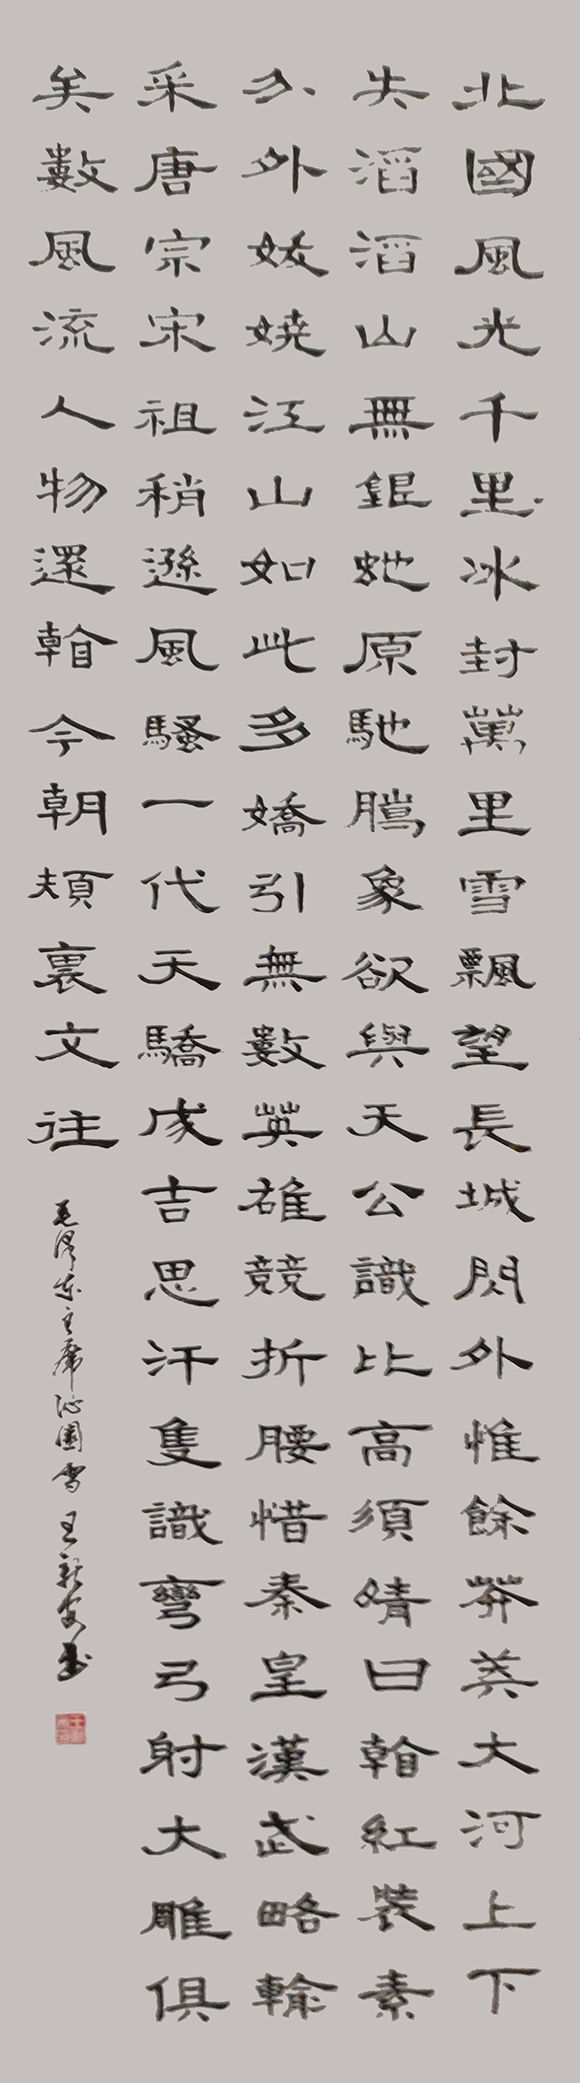 北國風光千里冰封萬里雪飄望長城閃外惟餘莽莽大河上下
失滔滔山無銀蛇原馳臘象欲與天公識比高須晴日看紅裝素
分外妖嬈江山如此多嬌引無數英雄競折腰惜秦皇漢武略輸
采唐宗宋祖稍遜風騷一代天驕成吉思汗隻識彎弓射大雕俱
矣數風流人物還看今朝頰裏文往
毛澤東主席沁園雪 王新安書